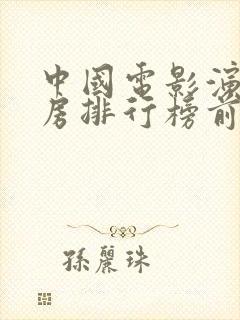 中國電影演
房排行榜前
孫麗珠